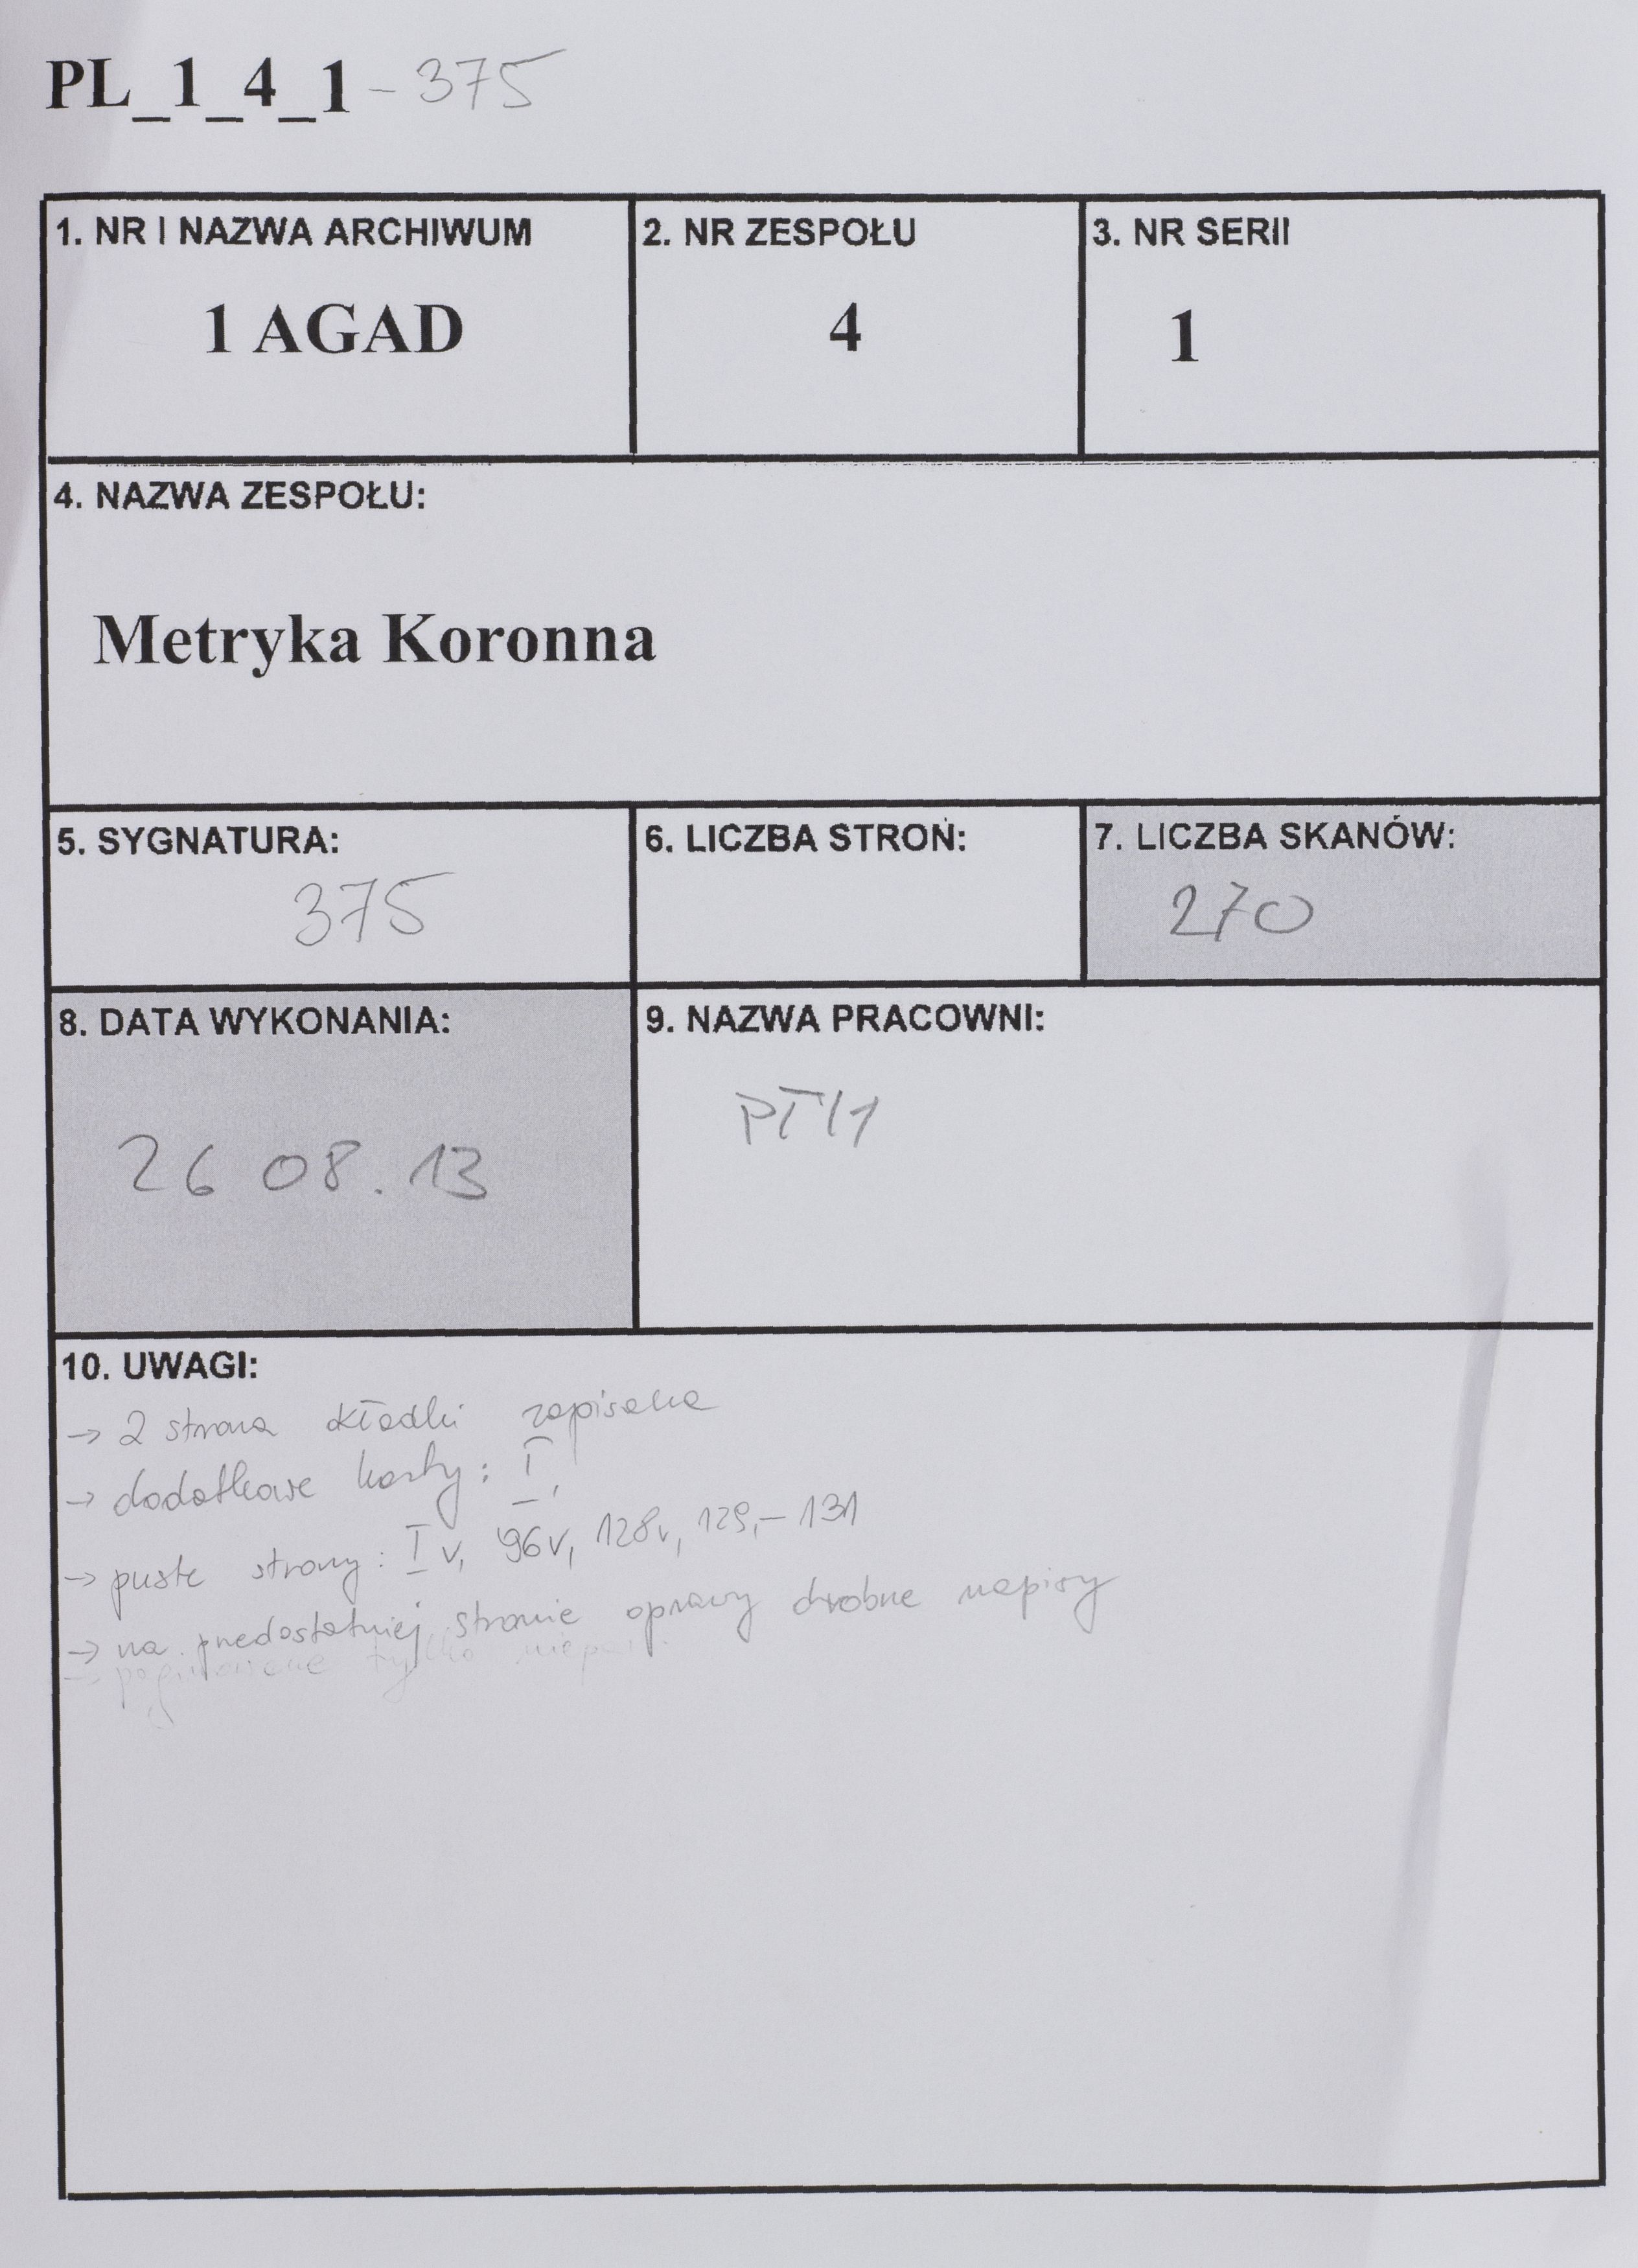 PL_1_4_1 - 375
1. NR I NAZWA ARCHIWUM
1 AGAD
2. NR ZESPOŁU
4
3. NR SERII
1
4. NAZWA ZESPOŁU:
Metryka Koronna
5. SYGNATURA:
375
6. LICZBA STRON:
7. LICZBA SKANÓW:
270
8. DATA WYKONANIA:
26 08.13
9. NAZWA PRACOWNI:
10. UWAGI:
→ 2 strona okładki zapisana
→ dodatkowe karty: I,
→ puste strony: I v, 96v, 128v, 129,-131
→ na przedostatniej stronie oprawy drobne napisy
tylko